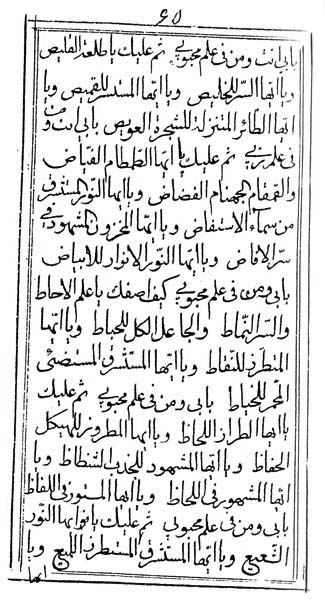 ٤٥
بابی انت ومن فی علم محبوبی ثم علیك یا طلعة القلیص
ویا ایها السر للخلیص ویا ایها المستسر للقمیص ویا
ایها الطائر المتنزلة للشجرة العویص بابی انت و من
فی علم ربی ثم علیك یا ایها الطمطام الفیاض
والقمقام الجهنام الفضاض ویا ایها النور المستشرق
من سمآء الاستفاض ویا ایها المخزون المشهود فی
سر الافاض ویا ایها النور الانوار للابیاض
بابی ومن فی علم محبوبی کیف اصفك یا علم الاحاط
والسر النماط والجاعل الكل للحیاط ویا ایها
المتطرز للنقاط ویا ایها المستشرق المستضئ
المحمر للخیاط بابی ومن فی علم محبوبی ثم علیك
یا ایها الطراز اللحاظ ویا ایها المطروز للهیكل
الحفاظ ویا ایها المشهود للجذب الشظاظ ویا
ایها المشهور فی اللحاظ ویا ایها المستور فی اللفاظ
بابی ومن فی علم محبوبی ثم علیك یا ایها النور
الشعیع ویا ایها المستشرق المستطرز اللمیع ویا
ایها